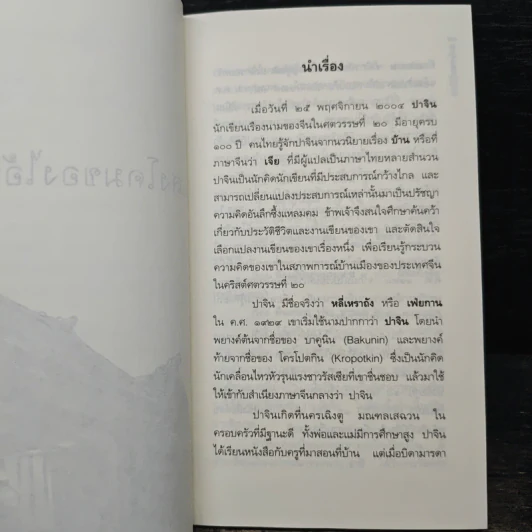 นำเรื่อง
เมื่อวันที่ ๒๕ พฤศจิกายน ๒๐๐๔ ปาจิน
นักเขียนเรื่องนามของจีนในศตวรรษที่ ๒๐ มีอายุครบ
๑๐๐ ปี คนไทยรู้จักปาจินจากนวนิยายเรื่อง บ้าน หรือที่
ภาษาจีนว่า เจีย ที่มีผู้แปลเป็นภาษาไทยหลายสำนวน
ปาจินเป็นนักคิดนักเขียนที่มีประสบการณ์กว้างไกล และ
สามารถเปลี่ยนแปลงประสบการณ์เหล่านั้นมาเป็นปรัชญา
ความคิดอันลึกซึ้งแหลมคม ข้าพเจ้าจึงสนใจศึกษาค้นคว้า
เกี่ยวกับประวัติชีวิตและงานเขียนของเขา และตัดสินใจ
เลือกแปลงานเขียนของเขาเรื่องหนึ่ง เพื่อเรียนรู้กระบวน
ความคิดของเขาในสภาพการณ์บ้านเมืองของประเทศจีน
ในคริสต์ศตวรรษที่ ๒๐
ปาจิน มีชื่อจริงว่า หลี่เหราถัง หรือ เฟ่ยกาน
ใน ค.ศ. ๑๙๒๙ เขาเริ่มใช้นามปากกาว่า ปาจิน โดยนำ
พยางค์ต้นจากชื่อของ บาคูนิน (Bakunin) และพยางค์
ท้ายจากชื่อของ โครโปตกิน (Kropotkin) ซึ่งเป็นนักคิด
นักเคลื่อนไหวหัวรุนแรงชาวรัสเซียที่เขาชื่นชอบ แล้วมาใช้
ให้เข้ากับสำเนียงภาษาจีนกลางว่า ปาจิน
ปาจินเกิดที่นครเฉิงตู มณฑลเสฉวน ใน
ครอบครัวที่มีฐานะดี ทั้งพ่อและแม่มีการศึกษาสูง ปาจิน
ได้เรียนหนังสือกับครูที่มาสอนที่บ้าน แต่เมื่อบิดามารดา